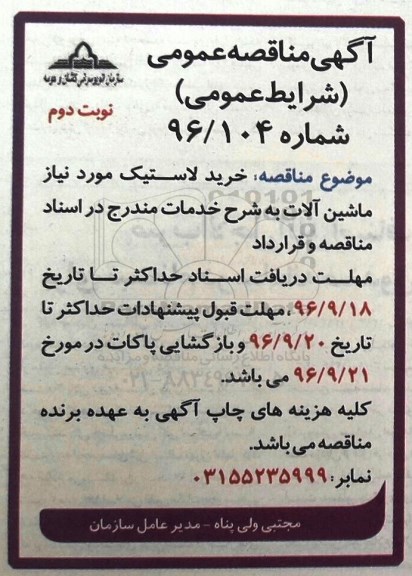 آگهی مناقصه عمومی
(شرایط عمومی)
شماره ۹۶/۱۰۴
سازمان اتوبوسرانی کاشان و حومه
نوبت دوم
موضوع مناقصه: خرید لاستیک مورد نیاز
ماشین آلات به شرح خدمات مندرج در اسناد
مناقصه و قرارداد
مهلت دریافت اسناد حداکثر تا تاریخ
۹۶/۹/۱۸، مهلت قبول پیشنهادات حداکثر تا
تاریخ ۹۶/۹/۲۰ و بازگشایی پاکات در مورخ
۹۶/۹/۲۱ می باشد.
کلیه هزینه های چاپ آگهی به عهده برنده
مناقصه می باشد.
نمابر: ۰۳۱۵۵۲۳۵۹۹۹
مجتبی ولی پناه - مدیر عامل سازمان